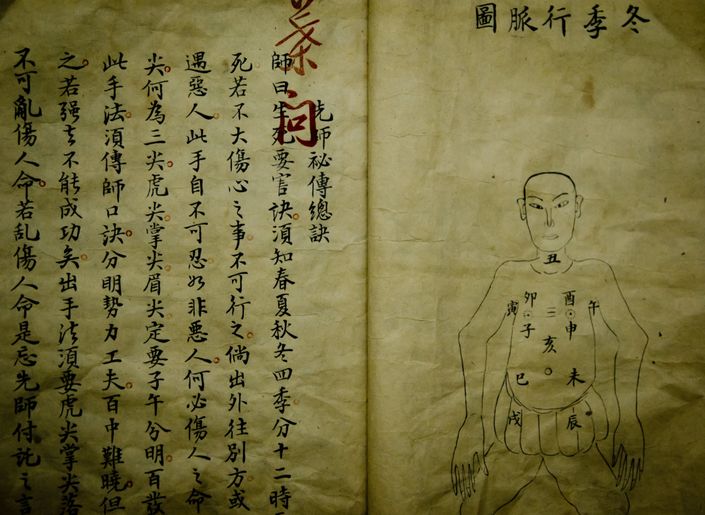 冬季行脈圖
丑
午 酉 卯 寅
申 子
亥
未 巳
辰 戌
葉問
先師祕傳總訣
師曰生死要害訣須知春夏秋冬四季分十二時
死若不大傷心之事不可行之倘出外往別方或
遇惡人此手自不可忍如非惡人何必傷人之命
尖何為三尖虎尖掌尖眉尖定要子午分明百發
此手法須傳師口訣分明勢力工夫百中難曉但
之若强不能成功矣出手法須要虎尖掌尖落
不可亂傷人命若乱傷人命是忘先師付託之言